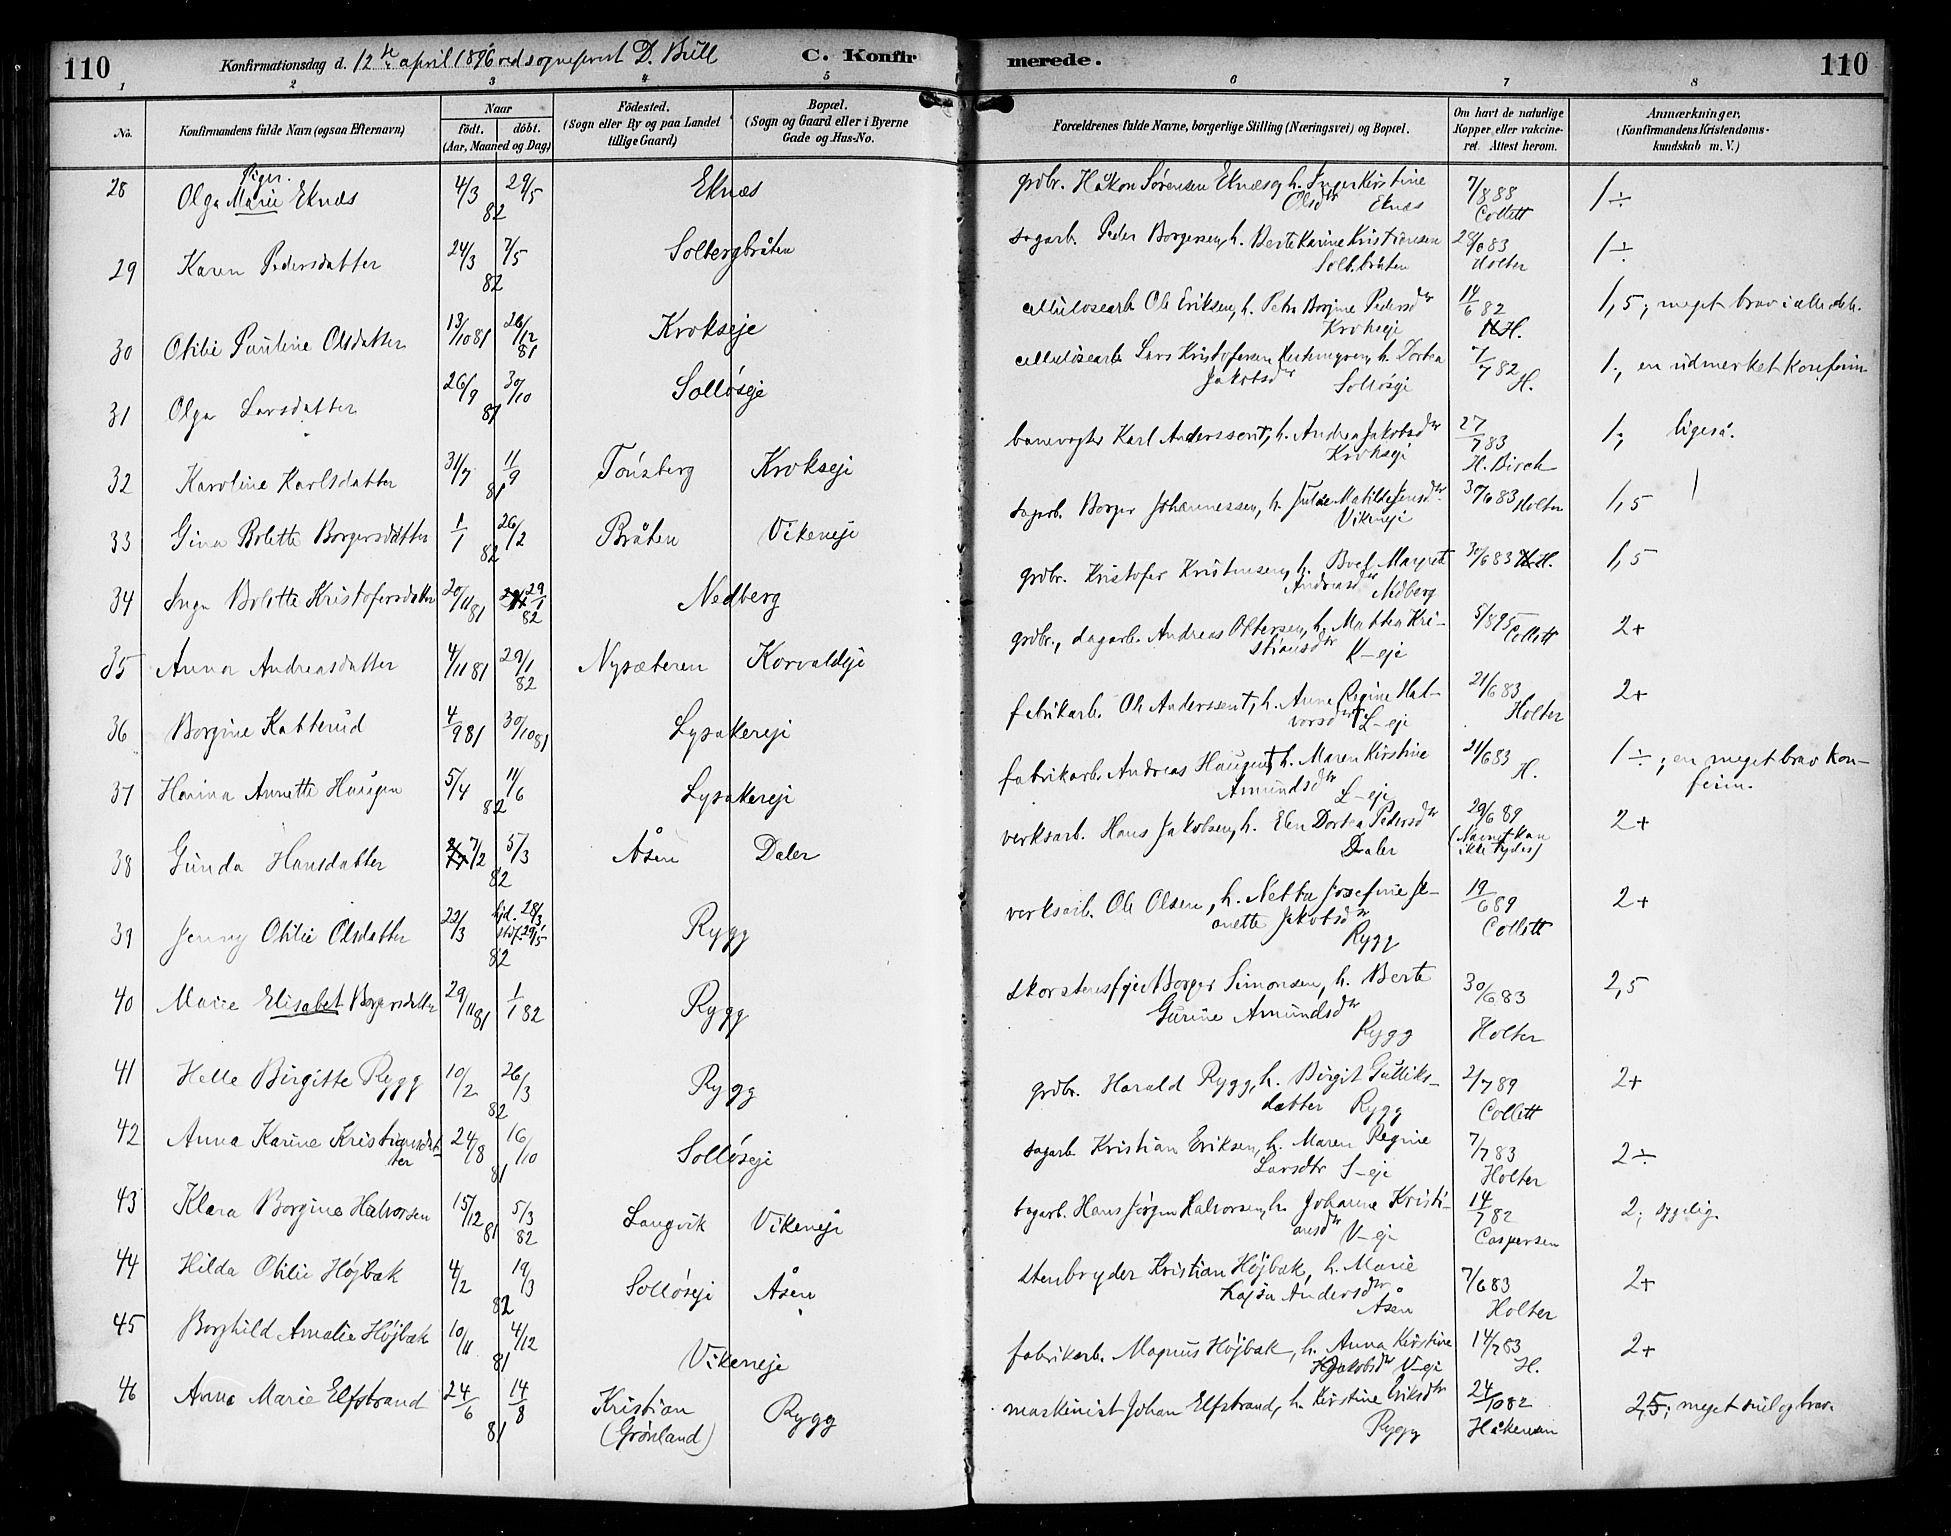 110 Konfirmationsdag d. 12te april 1896 ved sogneprest D. Bull C. Konfir merede. 110
1 2 3 4 5 6 7 8
No. Konfirmandens fulde Navn (ogsaa Efternavn) Naar født. døbt. (Aar, Maaned og Dag) Födested. (Sogn eller By og paa Landet tillige Gaard) Bopæl. (Sogn og Gaard eller i Byerne Gade og Hus-No. Forældrenes fulde Navne, borgerlige Stilling (Næringsvei) og Bopæl. Om havt de naturlige Kopper eller vakcineret. Attest herom. Anmærkninger. (Konfirmandens Kristendomskundskab m. V.)
Piger.
28 Olga Marie Eknæs 4/3 29/5 82 Eknæs grdbr. Håkon Sørensen Eknæs, h. Inger Kirstine Olsdtr Eknæs 7/8 88 Collett 1÷
29 Karen Pedersdatter 24/3 7/5 82 Solbergbråten sagarb. Peder Borgersen, h. Berte Karine Kristiansen Solb.bråten 83 Holter 1÷
30 Otilie Pauline Olsdatter 13/10 81 26/12 81 Krokseje cellulosearb. Ole Eriksen, h. Petra Borgine Pedersdtr Krokseje 14/6 82 H. 1,5; meget brav i alle dele.
31 Olga Larsdatter 26/9 30/10 81 Solløseje cellulosearb. Lars Kristofersen, h. Dortea Jakobsdtr Solløseje 7/7 82 H. 1; en udmerket konfirm
32 Karoline Karlsdatter 31/7 11/9 81 Tønsberg Krokseje banevogter Karl Anderssen†, h. Andrea Jakobsdtr Krokseje 27/7 83 H. Birch 1; ligeså.
33 Gina Bolette Borgersdatter 1/1 26/2 82 Bråten Vikeneje sagarb. Borger Johannessen, h. Julie Matilde Jensdtr Vikeneje 30/6 83 Holter 1,5
34 Inga Bolette Kristofersdatter 20/11 81 29/1 82 Nedberg grdbr. Kristofer Kristensen, h. Boel Margret Andreasdtr Nedberg 30/6 83 H. 1,5
35 Anna Andreasdatter 4/11 81 29/1 82 Nysæteren Korvaldeje grdbr., dagarb. Andreas Ottersen, h. Mathea Kristiansdtr K-eje 5/8 95 Collett 2+
36 Borgine Katterud 4/9 81 30/10 81 Lysakereje fabrikarb. Ole Anderssen†, h. Anne Regine Halvorsdtr† L-eje 21/6 83 Holter 2+
37 Hanna Annette Haugen 5/4 11/6 82 Lysakereje fabrikarb. Andreas Haugen†, h. Maren Kirstine Amundsdtr L-eje 21/6 83 H. 1÷; en meget brav konfirm.
38 Gunda Hansdatter 7/2 5/3 82 Åsen Daler verksarb. Hans Jakobsen, h. Elen Dortea Pedersdtr Daler 29/6 89 (Navnet kan ikke tydes) 2+
39 Jenny Otilie Olsdatter 22/3 hjd. 28/3 stdf. 29/5 82 Rygg verksarb. Ole Olsen, h. Netta Josefine Jeanette Jakobsdtr Rygg 19/6 89 Collett 2+
40 Marie Elisabet Borgersdatter 29/11 81 1/1 82 Rygg skorstensfejer Borger Simonsen, h. Berte Gurine Amundsdtr Rygg 30/6 83 Holter 2,5
41 Helle Birgitte Rygg 10/2 26/3 82 Rygg grdbr. Harald Rygg, h. Birgit Gulliksdatter Rygg 2/7 89 Collett 2+
42 Anna Karine Kristiansdatter 24/8 16/10 81 Solløseje sagarb. Kristian Eriksen, h. Maren Regine Larsdtr S-eje 7/7 83 Holter 2÷
43 Klara Borgine Halvorsen 15/12 81 5/3 82 Langvik Vikeneje sagarb. Hans Jørgen Halvorsen, h. Johanne Kristiansdtr V-eje 14/7 82 Caspersen 2; sygelig.
44 Hilda Otilie Højbæk 4/2 19/3 82 Solløseje Åsen stenbryder Kristian Højbæk, h. Marie Kajsa Andersdtr Åsen 7/6 83 Holter 2+
45 Borghild Amalie Højbæk 10/11 4/12 81 Vikeneje fabrikarb. Magnus Højbæk, h. Anna Kirstine Jakobsdtr V-eje 14/7 83 H. 2+
46 Anna Marie Elfstrand 24/6 14/8 81 Kristian (Grønland) Rygg maskinist Johan Elfstrand, h. Kirstine Eriksdtr Rygg 24/10 82 Håkensen 2,5; meget snil og brav.